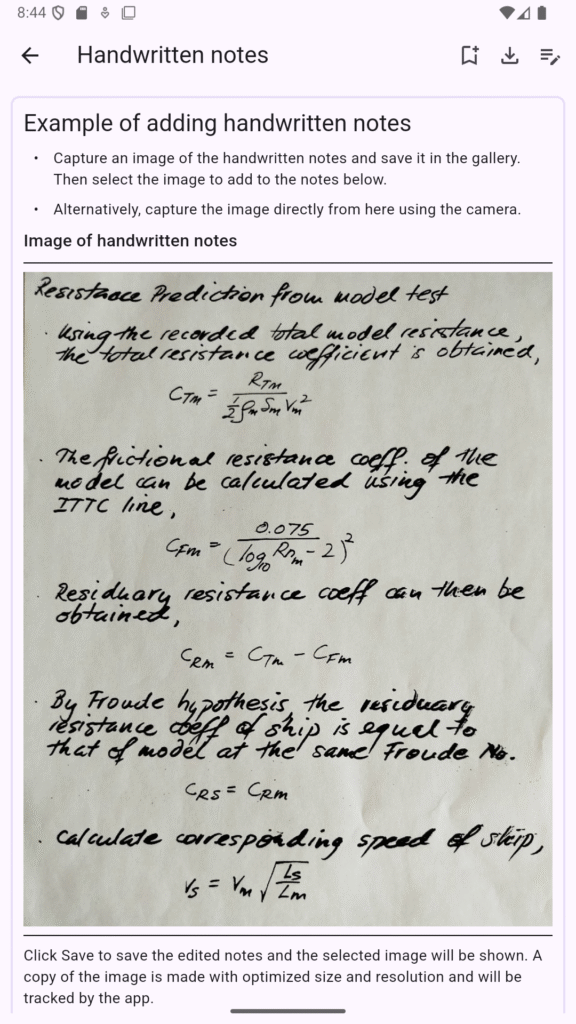 8:44
Handwritten notes
Example of adding handwritten notes
• Capture an image of the handwritten notes and save it in the gallery.
Then select the image to add to the notes below.
• Alternatively, capture the image directly from here using the camera.
Image of handwritten notes
Resistance Prediction from model test
· Using the recorded total model resistance,
the total resistance coefficient is obtained,
C_Tm = R_Tm / (1/2 ρ_m S_m V_m^2)
· The frictional resistance coeff. of the
model can be calculated using the
ITTC line,
C_Fm = 0.075 / (log_10 Rn_m - 2)^2
· Residuary resistance coeff can then be
obtained,
C_Rm = C_Tm - C_Fm
· By Froude hypothesis, the residuary
resistance coeff of ship is equal to
that of model at the same Froude No.
C_RS = C_Rm
· Calculate corresponding speed of ship,
V_S = V_m √(L_S / L_m)
Click Save to save the edited notes and the selected image will be shown. A
copy of the image is made with optimized size and resolution and will be
tracked by the app.